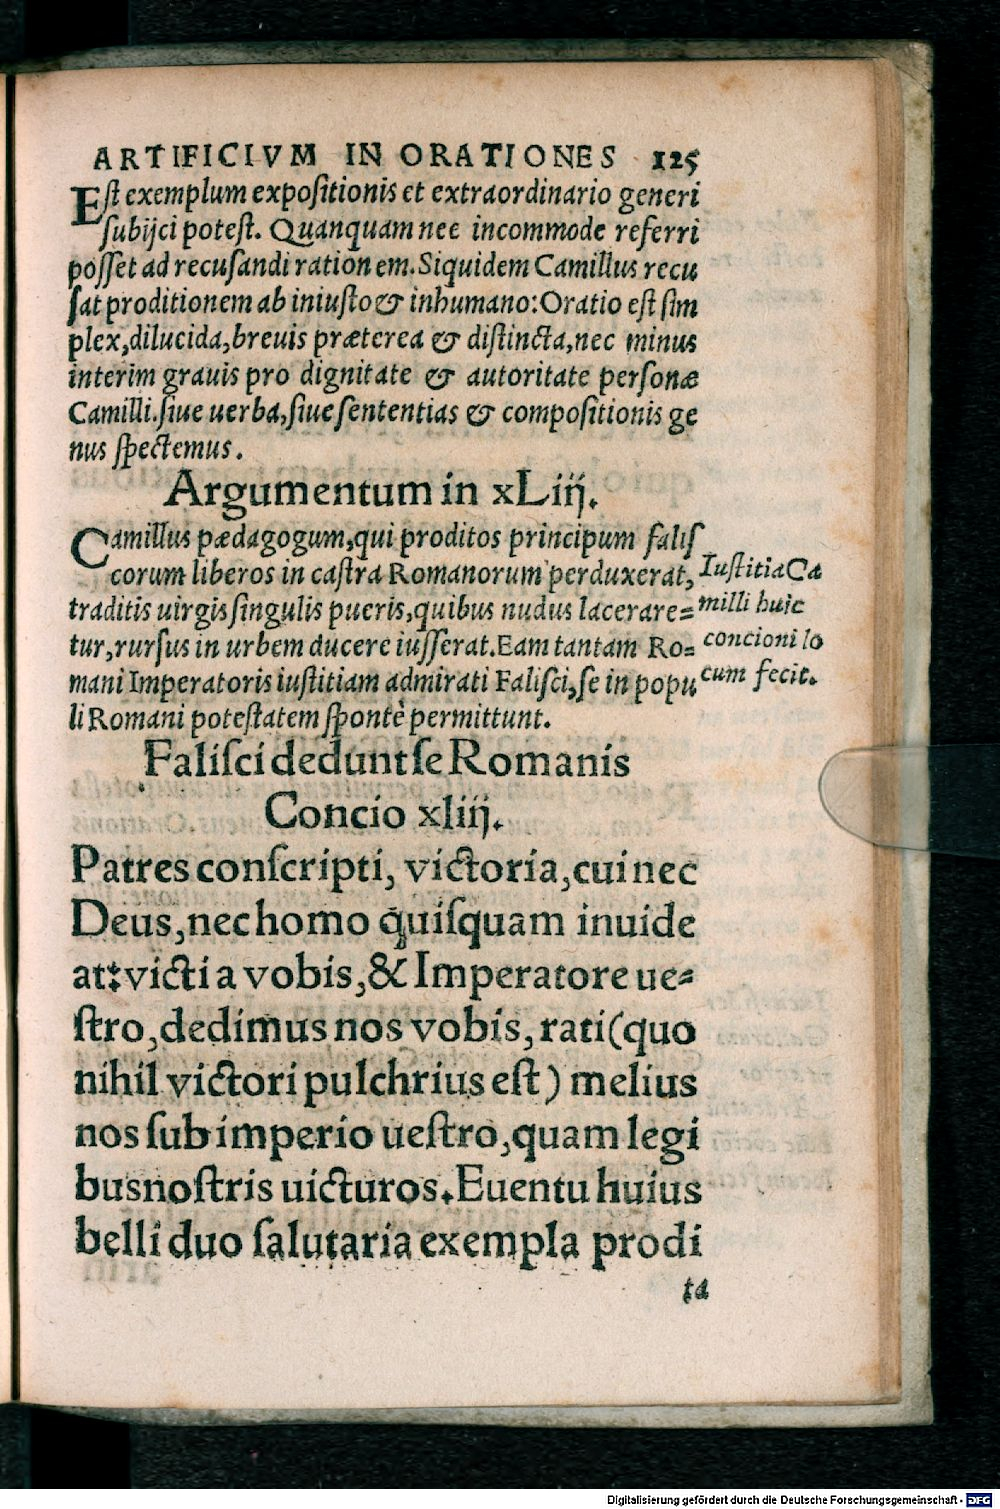 ARTIFICIVM IN ORATIONES 125
Est exemplum expositionis et extraordinario generi
subijci potest. Quanquam nec incommode referri
posset ad recusandi rationem. Siquidem Camillus recu
sat proditionem ab iniusto & inhumano: Oratio est sim
plex, dilucida, breuis præterea & distincta, nec minus
interim grauis pro dignitate & autoritate personæ
Camilli. siue uerba, siue sententias & compositionis ge
nus spectemus.
Argumentum in xLiij.
Camillus pædagogum, qui proditos principum falis
corum liberos in castra Romanorum perduxerat,
traditis uirgis singulis pueris, quibus nudus lacerare=
tur, rursus in urbem ducere iusserat. Eam tantam Ro=
mani Imperatoris iustitiam admirati Falisci, se in popu
li Romani potestatem spontè permittunt.
Iustitia Ca
milli huic
concioni lo
cum fecit.
Falisci dedunt se Romanis
Concio xliij.
Patres conscripti, victoria, cui nec
Deus, nec homo quisquam inuide
at: victi a vobis, & Imperatore ue=
stro, dedimus nos vobis, rati (quo
nihil victori pulchrius est) melius
nos sub imperio uestro, quam legi
bus nostris uicturos. Euentu huius
belli duo salutaria exempla prodi
ta
Digitalisierung gefördert durch die Deutsche Forschungsgemeinschaft - DFG